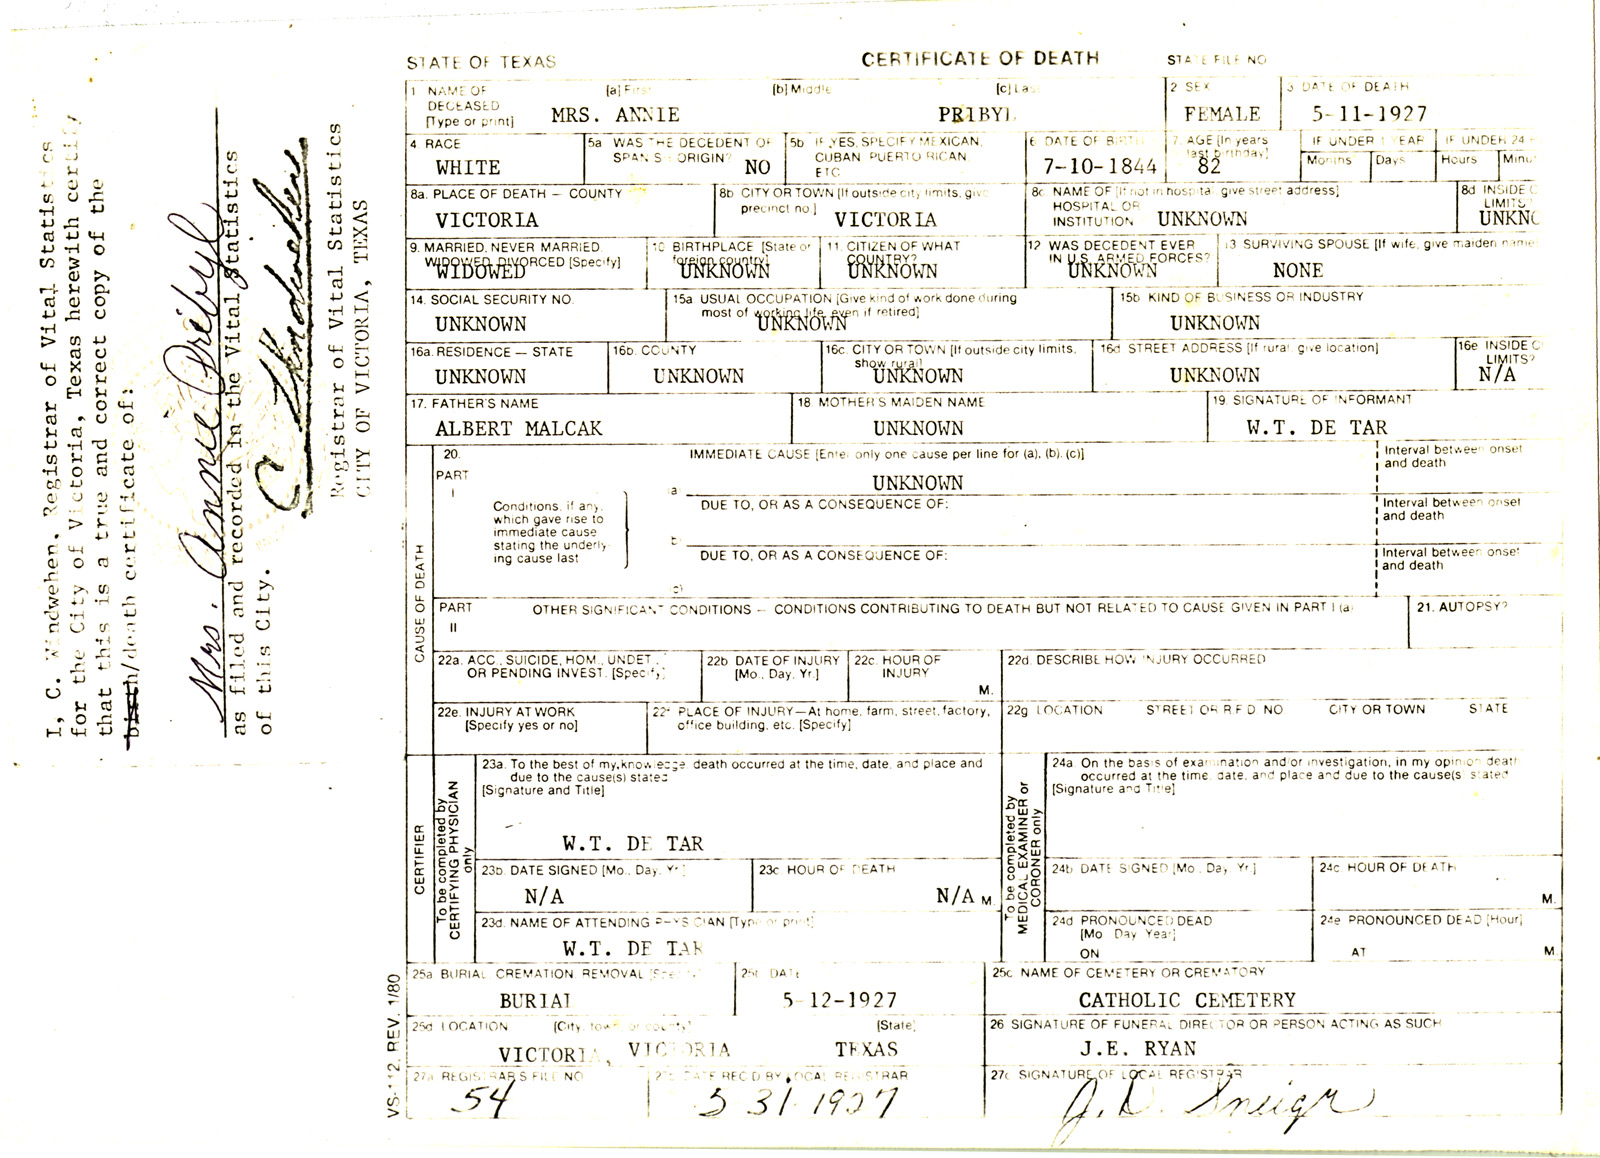 I, C. Windwehen, Registrar of Vital Statistics
for the City of Victoria, Texas herewith certify
that this is a true and correct copy of the
birth/death certificate of:
Mrs. Annie Pribyl
as filed and recorded in the Vital Statistics
of this City.
C Windwehen
Registrar of Vital Statistics
CITY OF VICTORIA, TEXAS
STATE OF TEXAS CERTIFICATE OF DEATH STATE FILE NO
1 NAME OF DECEASED [Type or print] [a] First [b] Middle [c] Las
MRS. ANNIE PRIBYL
2 SEX
FEMALE
3 DATE OF DEATH
5-11-1927
4 RACE
WHITE
5a WAS THE DECEDENT OF SPANISH ORIGIN?
NO
5b IF YES, SPECIFY MEXICAN, CUBAN PUERTO RICAN, ETC
6 DATE OF BIRTH
7-10-1844
7. AGE [In years last birthday]
82
IF UNDER 1 YEAR
Months Days
IF UNDER 24
Hours Minu
8a. PLACE OF DEATH — COUNTY
VICTORIA
8b CITY OR TOWN [If outside city limits, give precinct no.]
VICTORIA
8c NAME OF [If not in hospital give street address] HOSPITAL OR INSTITUTION
UNKNOWN
8d INSIDE C LIMITS?
UNKNO
9. MARRIED, NEVER MARRIED, WIDOWED, DIVORCED [Specify]
WIDOWED
10 BIRTHPLACE [State or foreign country]
UNKNOWN
11. CITIZEN OF WHAT COUNTRY?
UNKNOWN
12 WAS DECEDENT EVER IN U.S. ARMED FORCES?
UNKNOWN
13 SURVIVING SPOUSE [If wife, give maiden name
NONE
14. SOCIAL SECURITY NO.
UNKNOWN
15a USUAL OCCUPATION [Give kind of work done during most of working life, even if retired]
UNKNOWN
15b KIND OF BUSINESS OR INDUSTRY
UNKNOWN
16a. RESIDENCE — STATE
UNKNOWN
16b. COUNTY
UNKNOWN
16c. CITY OR TOWN [If outside city limits, show rural]
UNKNOWN
16d STREET ADDRESS [If rural, give location]
UNKNOWN
16e INSIDE C LIMITS?
N/A
17. FATHER'S NAME
ALBERT MALCAK
18 MOTHER'S MAIDEN NAME
UNKNOWN
19. SIGNATURE OF INFORMANT
W.T. DE TAR
CAUSE OF DEATH
20.
PART
I
IMMEDIATE CAUSE [Enter only one cause per line for (a), (b), (c)]
(a UNKNOWN
Interval between onset and death
Conditions, if any, which gave rise to immediate cause stating the underlying cause last
DUE TO, OR AS A CONSEQUENCE OF:
Interval between onset and death
b
DUE TO, OR AS A CONSEQUENCE OF:
Interval between onset and death
(c)
PART II
OTHER SIGNIFICANT CONDITIONS — CONDITIONS CONTRIBUTING TO DEATH BUT NOT RELATED TO CAUSE GIVEN IN PART I (a)
21. AUTOPSY?
22a. ACC., SUICIDE, HOM., UNDET., OR PENDING INVEST. [Specify]
22b DATE OF INJURY [Mo., Day, Yr.]
22c. HOUR OF INJURY
M.
22d. DESCRIBE HOW INJURY OCCURRED
22e. INJURY AT WORK [Specify yes or no]
22f PLACE OF INJURY—At home, farm, street, factory, office building, etc. [Specify]
22g LOCATION STREET OR R.F.D. NO CITY OR TOWN STATE
CERTIFIER
To be completed by CERTIFYING PHYSICIAN only
23a. To the best of my knowledge, death occurred at the time, date, and place and due to the cause(s) stated
[Signature and Title]
W.T. DE TAR
23b. DATE SIGNED [Mo., Day, Yr]
N/A
23c HOUR OF DEATH
N/A M.
23d. NAME OF ATTENDING PHYSICIAN [Type or print]
W.T. DE TAR
To be completed by MEDICAL EXAMINER or CORONER only
24a On the basis of examination and/or investigation, in my opinion death occurred at the time, date, and place and due to the cause(s) stated
[Signature and Title]
24b DATE SIGNED [Mo., Day, Yr.]
24c HOUR OF DEATH
M.
24d PRONOUNCED DEAD [Mo Day Year]
ON
24e PRONOUNCED DEAD [Hour]
AT M.
25a BURIAL CREMATION, REMOVAL [Specify]
BURIAL
25b DATE
5-12-1927
25c NAME OF CEMETERY OR CREMATORY
CATHOLIC CEMETERY
25d LOCATION [City, town or county] [State]
VICTORIA, VICTORIA TEXAS
26 SIGNATURE OF FUNERAL DIRECTOR OR PERSON ACTING AS SUCH
J.E. RYAN
27a REGISTRAR'S FILE NO
54
27b DATE REC'D BY LOCAL REGISTRAR
5 31 1927
27c SIGNATURE OF LOCAL REGISTRAR
VS-112, REV. 1/80